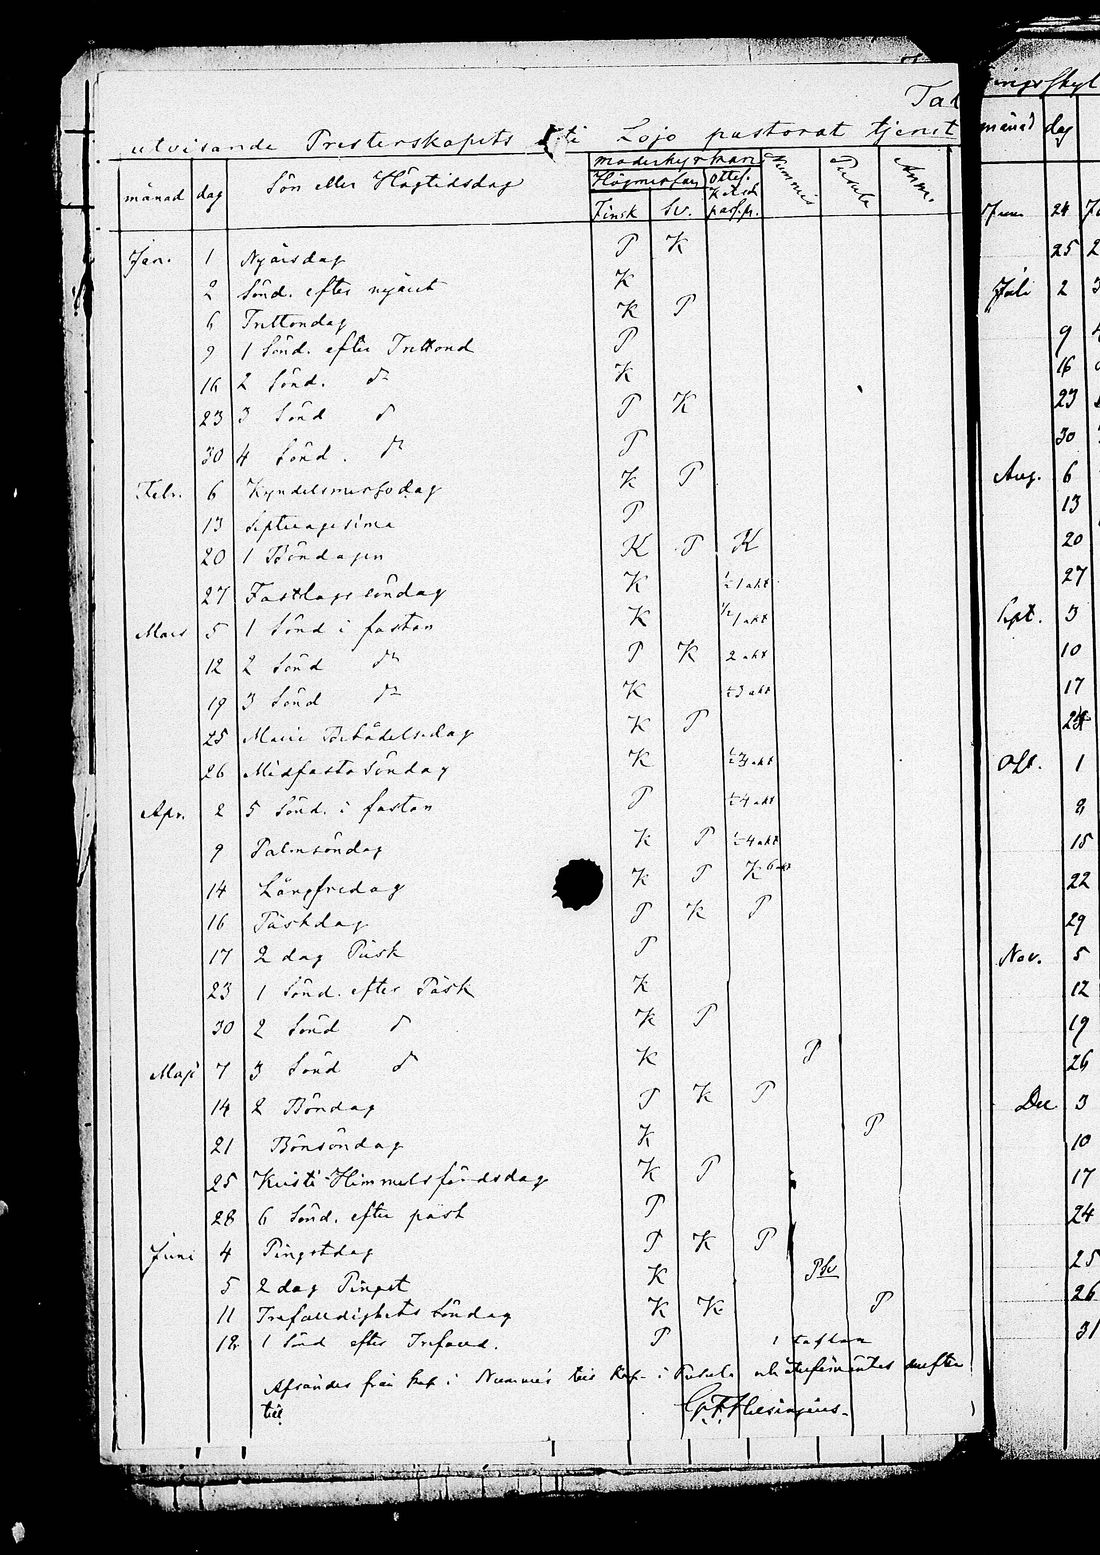 Tab
utvisande Presterskapets i Lojo pastorat tjenst
moderkyrkan
månad dag Sön eller Högtidsdag Högmessan Nummis Pusula Anm.
Finsk Sv.
Jan. 1 Nyårsdag P K
2 Sönd. efter nyåret K
6 Trettondag K P
9 1 Sönd. efter Trettond P
16 2 Sönd. do K
23 3 Sönd do P K
30 4 Sönd. do P
Febr. 6 Kyndelsmessodag K P
13 Septuagesima P
20 1 Böndagen K P K
27 Fastlagssöndag K 1/2 1 akt
Mars 5 1 Sönd i fastan K 1/2 1 akt
12 2 Sönd do P K 2 akt
19 3 Sönd do K 1/2 3 akt
25 Marie Bebådelsedag K P
26 Midfastosöndag K 1/2 3 akt
Apr. 2 5 Sönd. i fastan P 1/2 4 akt
9 Palmsöndag K P 1/2 4 akt
14 Långfredag K P K 6 akt
16 Påskdag P K P
17 2 dag Påsk P
23 1 Sönd. efter Påsk K
30 2 Sönd do K P
Maji 7 3 Sönd do K P
14 2 Böndag P K P
21 Bönsöndag K P
25 Kristi Himmelsfärdsdag K P
28 6 Sönd. efter påsk P
Juni 4 Pingstdag P K P
5 2 dag Pingst K P Sv
11 Trefaldighets Söndag K K P
18 1 Sönd efter Trefald. P
Afsändes från kap. i Nummis till Kap. i Pusula
till
G. F. Helsingius.
månad dag
Juni 24
25
Juli 2
9
16
23
30
Aug. 6
13
20
27
Sept. 3
10
17
24
Okt. 1
8
15
22
29
Nov. 5
12
19
26
Dec 3
10
17
24
25
26
31